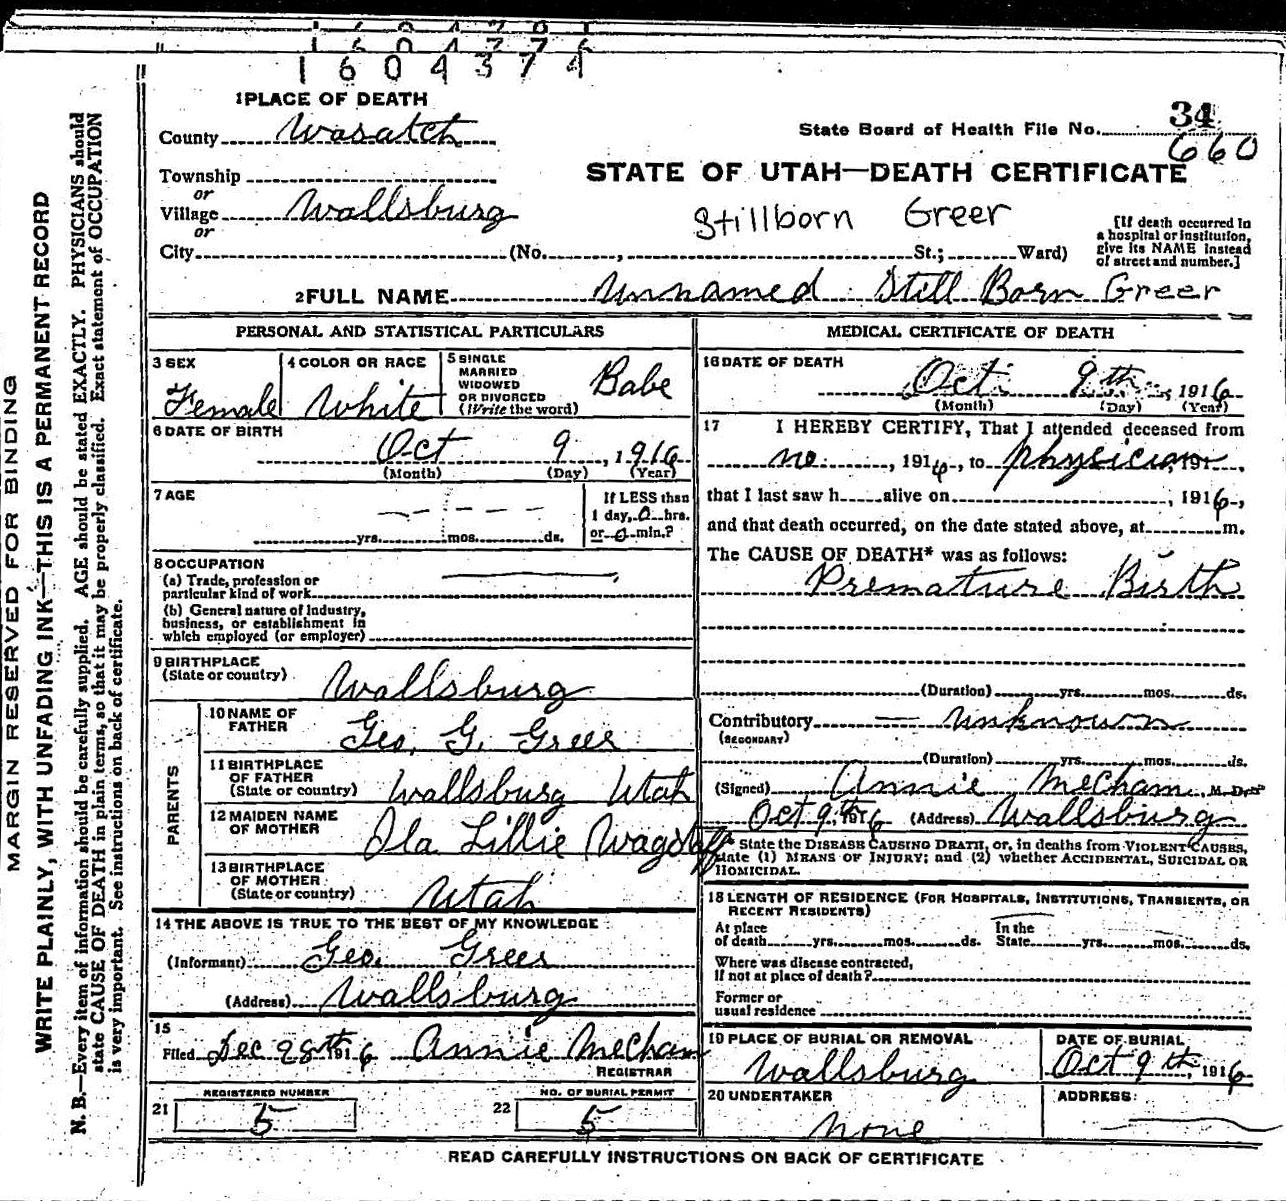 1604374
1 PLACE OF DEATH
County Wasatch
State Board of Health File No. 34
660
Township
or
Village Wallsburg
or
City (No. , St.; Ward)
STATE OF UTAH—DEATH CERTIFICATE
Stillborn Greer
[If death occurred in
a hospital or institution,
give its NAME instead
of street and number.]
2 FULL NAME Unnamed Still Born Greer
PERSONAL AND STATISTICAL PARTICULARS
3 SEX
Female
4 COLOR OR RACE
White
5 SINGLE
MARRIED
WIDOWED
OR DIVORCED
(Write the word)
Babe
6 DATE OF BIRTH
Oct 9, 1916
(Month) (Day) (Year)
7 AGE
yrs. mos. ds.
If LESS than
1 day, 0 hrs.
or 0 min.?
8 OCCUPATION
(a) Trade, profession or
particular kind of work
(b) General nature of Industry,
business, or establishment in
which employed (or employer)
9 BIRTHPLACE
(State or country)
Wallsburg
PARENTS
10 NAME OF
FATHER
Geo. G. Greer
11 BIRTHPLACE
OF FATHER
(State or country)
Wallsburg Utah
12 MAIDEN NAME
OF MOTHER
Ila Lillie Wagstaff
13 BIRTHPLACE
OF MOTHER
(State or country)
Utah
14 THE ABOVE IS TRUE TO THE BEST OF MY KNOWLEDGE
(Informant) Geo. Greer
(Address) Wallsburg
15
Filed Dec 28th 1916 Annie Mecham
REGISTRAR
REGISTERED NUMBER
21 5
NO. OF BURIAL PERMIT
22 5
MEDICAL CERTIFICATE OF DEATH
16 DATE OF DEATH
Oct 9th, 1916
(Month) (Day) (Year)
17 I HEREBY CERTIFY, That I attended deceased from
no, 1916, to physician, 191 ,
that I last saw h alive on , 1916,
and that death occurred, on the date stated above, at m.
The CAUSE OF DEATH* was as follows:
Premature Birth
(Duration) yrs. mos. ds.
Contributory — unknown
(SECONDARY)
(Duration) yrs. mos. ds.
(Signed) Annie Mecham, M. D.
Oct 9th, 1916 (Address) Wallsburg
* State the DISEASE CAUSING DEATH, or, in deaths from VIOLENT CAUSES,
state (1) MEANS OF INJURY; and (2) whether ACCIDENTAL, SUICIDAL OR
HOMICIDAL.
18 LENGTH OF RESIDENCE (FOR HOSPITALS, INSTITUTIONS, TRANSIENTS, OR
RECENT RESIDENTS)
At place
of death yrs. mos. ds.
In the
State yrs. mos. ds.
Where was disease contracted,
if not at place of death?
Former or
usual residence
19 PLACE OF BURIAL OR REMOVAL
Wallsburg
DATE OF BURIAL
Oct 9th, 1916
20 UNDERTAKER
none
ADDRESS:
READ CAREFULLY INSTRUCTIONS ON BACK OF CERTIFICATE
MARGIN RESERVED FOR BINDING
WRITE PLAINLY, WITH UNFADING INK—THIS IS A PERMANENT RECORD
N. B.—Every item of information should be carefully supplied. AGE should be stated EXACTLY. PHYSICIANS should
state CAUSE OF DEATH in plain terms, so that it may be properly classified. Exact statement of OCCUPATION
is very important. See instructions on back of certificate.